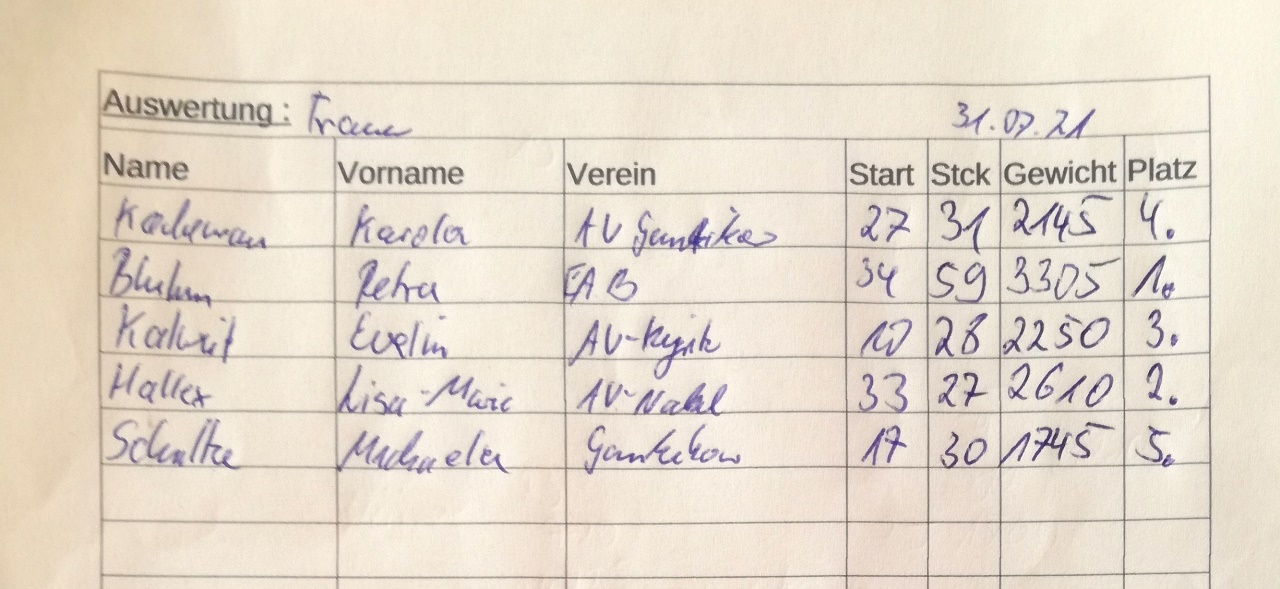 Auswertung : Frauen 31.07.21
Name Vorname Verein Start Stck Gewicht Platz
Karola AV Gantikow 27 31 2145 4.
Bluhm Petra 34 59 3305 1.
Kalweit Evelin AV-Kyritz 10 28 2250 3.
Haller Lisa-Marie AV-Nakel 33 27 2610 2.
Schultze Michaela Gantikow 17 30 1745 5.